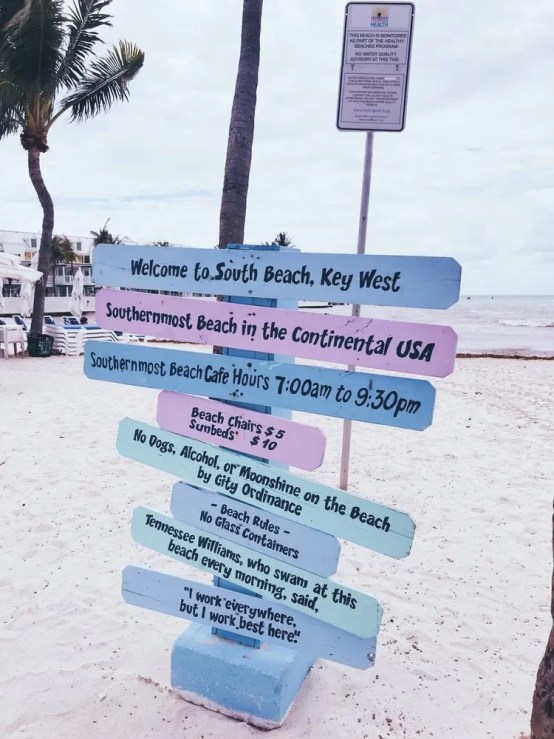 HEALTH
THIS BEACH IS MONITORED
AS PART OF THE HEALTHY
BEACHES PROGRAM
NO WATER QUALITY
ADVISORY AT THIS TIME
Welcome to South Beach, Key West
Southernmost Beach in the Continental USA
Southernmost Beach Cafe Hours 7:00am to 9:30pm
Beach Chairs $5
Sunbeds $10
No Dogs, Alcohol, or Moonshine on the Beach
by City Ordinance
- Beach Rules -
No Glass Containers
Tennessee Williams, who swam at this
beach every morning, said,
"I work everywhere,
but I work best here."